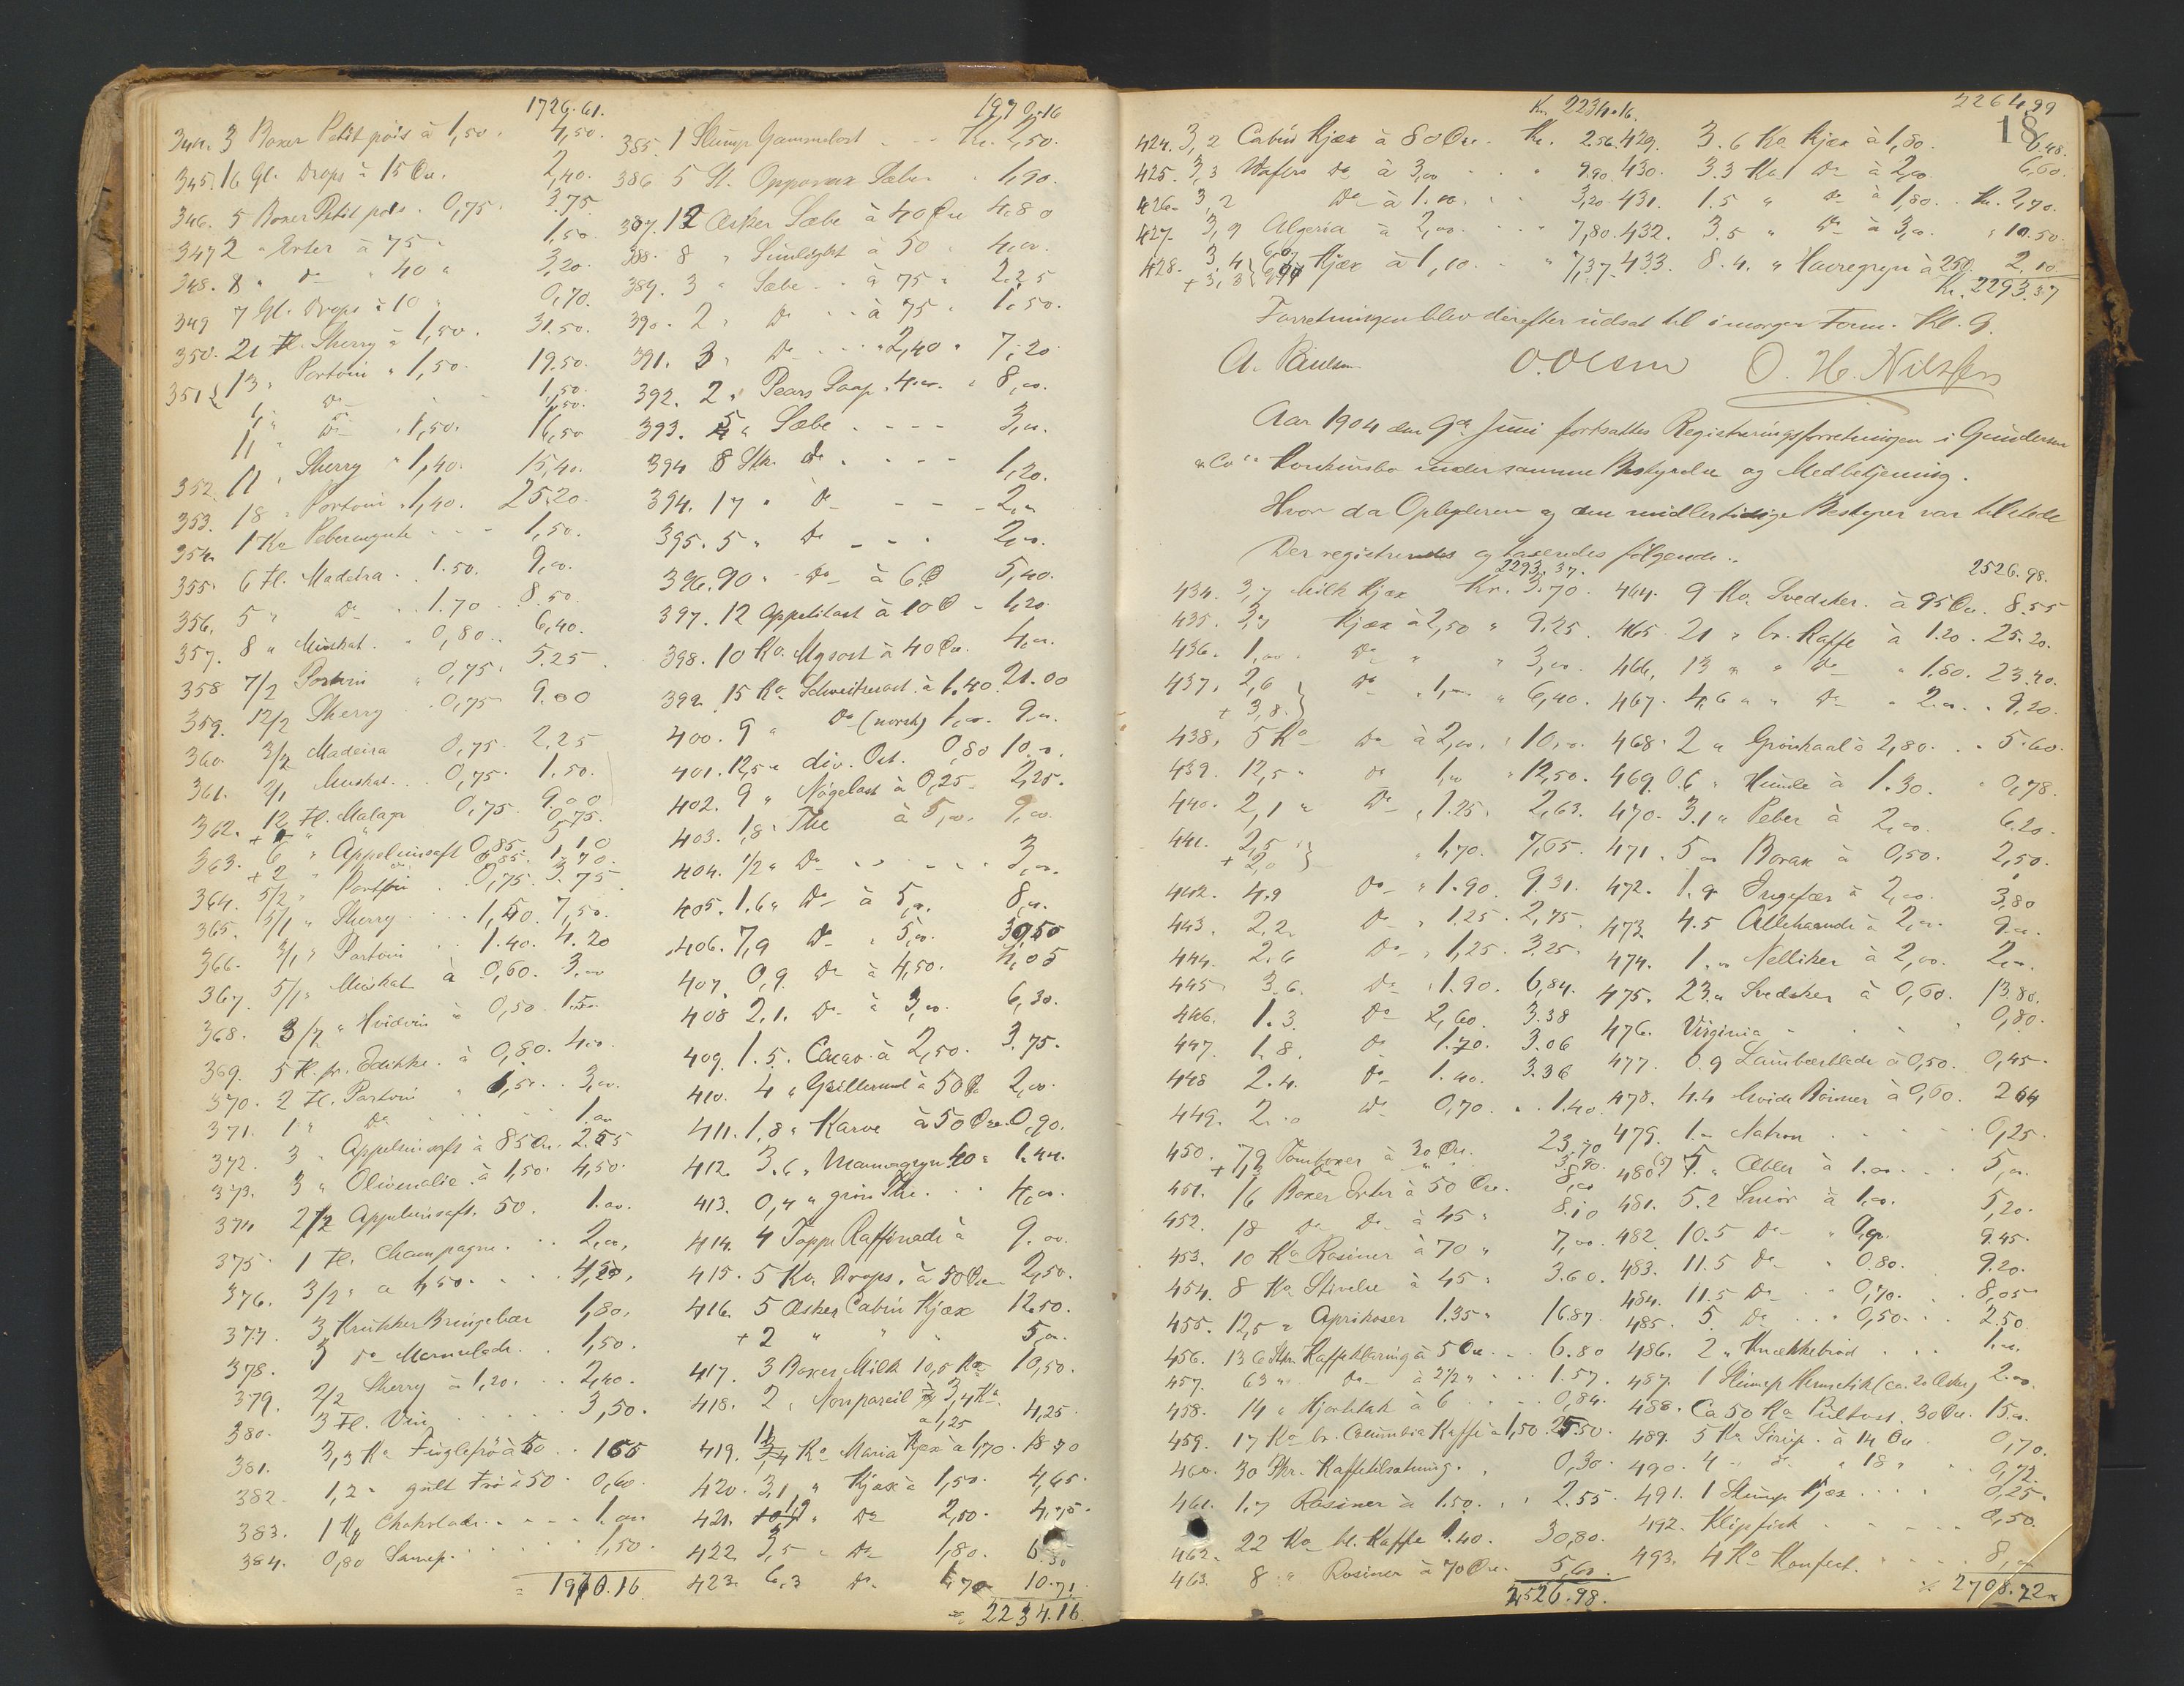 1726.61.
344. 3 Boxer Petit pois à 1,50. 4,50.
345. 16 Gl. Drops à 15 Øre. 2,40.
346. 5 Boxer Petit pois. 0,75. 3.75.
347 2 " Erter à 75 " 1,50.
348. 8 " Do " 40 " 3,20.
349 7 Gl. Drops à 10 " 0,70.
350. 21 Fl. Sherry à 1,50. 31.50.
351 13 " Portvin " 1,50. 19.50.
1 " Do 1,50.
11 " Do " 1,50. 16,50
352. 11 " Sherry " 1,40. 15,40.
353. 18 " Portvin " 1,40. 25.20.
354. 1 Ko Pebermynte - - - 1,50.
355. 6 Fl. Madeira. 1.50. 9,00.
356. 5 " Do 1.70 8.50.
357. 8 " Muskat. 0,80. 6,40.
358 7/2 Portvin " 0,75. 5.25.
359. 12/2 Sherry 0,75 9.00
360. 3/2 Madeira 0,75. 2.25
361. 2/1 Muskat. 0,75. 1,50.
362. 12 Fl. Malaga 0,75. 9.00
+ 1 " " 0,75.
363. 6 " Appelsinsaft 0,85. 5.10
+ 2 " " 0,85. 1,70.
364. 5/2 " Portvin 0,75. 3.75
365. 5/1 " Sherry 1,50. 7,50.
366. 3/1 " Portvin 1.40. 4.20
367. 5/1 " Muskat à 0,60. 3,00
368. 3/2 " Hvidvin à 0,50 1.50
369. 5 Fl. fr. Edikke. à 0,80. 4,00.
370. 2 Fl. Portvin " 1,50. 3,00.
371. 1 " Do 1.00
372. 3 " Appelsinsaft à 85 Øre. 2.55
373. 3 " Olivenolie. à 1,50. 4,50.
374 2/2 Appelsinsaft. 50. 1.00.
375. 1 Fl. Champagne. 2,00.
376. 3/2 " à 1,50. 4,50.
377. 3 Krukker Bringebær 1,80.
378. 3 Do Marmelade. 1,50.
379. 2/2 Sherry à 1,20. 2,40.
380. 3 Fl. Vin 3,50.
381. 3,3 Ko Fuglefrö à 50 1.65
382. 1,2 " gult Frö à 50. 0,60.
383. 1 Ko Chokolade. 1.00
384. 0,80 Sennep. 1,50.
= 1970.16
1970.16
385. 1 Slump Gammelost Kr. 2,50.
386 5 St. Opponax Sæbe 1,90.
387. 12 Æsker Sæbe à 40 Øre 4.80
388. 8 " Sunlight à 50 " 4,00.
389. 3 " Sæbe à 75 " 2.25
390. 2 " Do à 75 " 1,50.
391. 3 " Do " 2,40 " 7,20
392. 2 " Pears Soap. 4.00. " 8,00.
393. 5 " Sæbe - - - - 3,00.
394 8 Stk. Do - - - 1,20.
394. 17 " Do - - - 2,00
395. 5 " Do - - - 2,00.
396. 90 " Do à 6 Ø 5,40.
397. 12 Appetitost à 10 Ø - 1,20.
398. 10 Ko. Mysost à 40 Øre. 4,00.
399. 15 Ko Schweitserost. à 1.40. 21.00
400. 9 " Do (norsk) 1,00. 9,00.
401. 12,5 " div. Ost. 0,80 10,00.
402. 9 " Nögelost à 0,25. 2,25.
403. 1,8 " The à 5,00. 9,00.
404. 1/2 " Do 3,00.
405. 1.6 " Do à 5,00. 8,00.
406. 7,9 Do " 5,00. 39,50
407. 0,9. Do à 4,50. 4,05
408 2.1. Do à 3,00. 6,30.
409. 1.5. Cacao à 2,50. 3.75.
410. 4 " à 50 Ø 2,00.
411. 1,8 " Karve à 50 Øre. 0,90.
412. 3.6 " Mannagryn 40 " 1.44.
413. 0,4 " grön The. 4,00.
414. 4 Toppe Raffinade à 9.00.
415. 5 Ko. Drops. à 50 Øre 2,50.
416. 5 Æsker Cabin Kjæx 12.50.
+ 2 " " " 5,00.
417. 3 Boxer Milk 10,5 Ko 10,50.
418. 2 " Nonpareil 3,4 Ko
à 1,25 4,25.
419. 11 Ko Maria Kjæx à 1,70. 18.70
420. 3,1 " Kjæx à 1,50. 4,65.
421. 1,9 " Do 2,50. 4.75.
422. 3,5 " Do 1,80. 6.30
423. 6,3 Do 1,70 10.71.
= 2234.16
Kr. 2234.16.
424. 3,2 Cabin Kjæx à 80 Øre. Kr. 2.56.
425. 3,3 Wafers Do à 3,00 9.90.
426. 3,2 Do à 1.00. 3,20
427. 3,9 Algeria à 2,00. 7,80.
428. 3.4 + 3,3 Kjæx à 1,10. 7,37.
2264.99
18
429. 3.6 Ko Kjæx à 1,80. 6.48.
430. 3.3 Ko Do à 2,00 6,60.
431. 1.5 " Do à 1,80. Kr. 2,70.
432. 3.5 " Do à 3,00. " 10.50.
433. 8.4. " Havregryn à 25 Ø. 2.10
Kr. 2293.37
Forretningen blev derefter udsat til imorgen Form. Kl. 9.
A. Paulsen O. Olsen O. H. Nilssen
Aar 1904 den 9de Juni fortsattes Registreringsforretningen i Gundersen
& Co's Konkursbo under samme Bestyrelse og Medbetjening.
Hvor da Opbyderen og den midlertidige Bestyrer var tilstede
Der registreredes og taxeredes følgende:
2293.37.
434. 3,7 Milk Kjæx Kr. 3.70.
435. 3,7 Kjæx à 2,50 " 9.25.
436. 1,00. Do " " 3,00.
437. 2,6 Do " 1,00. " 6,40.
+ 3,8.
438. 5 Ko Do à 2,00. 10,00.
439. 12,5 " Do 1,00 " 12,50.
440. 2,1 " Do " 1.25. 2,63.
441. 2,5 " 1,70. 7,65.
+ 2,0
442. 4.9 Do " 1.90. 9.31.
443. 2.2 Do " 1.25. 2,75.
444. 2.6 Do " 1,25. 3.25.
445 3.6. Do " 1.90. 6,84.
446. 1.3. Do 2,60. 3.38
447. 1.8. Do 1.70. 3.06
448 2.4. Do 1.40. 3.36
449. 2.0 Do 0,70. 1.40.
450. 79 Tomboxer à 30 Øre. 23.70
+ 13 Do " " 3,90.
451. 16 Boxer Erter à 50 Øre. 8,00
452. 18 Do Do à 45 " 8.10
453. 10 Ko Rosiner à 70 " 7,00.
454. 8 Ko Stivelse à 45 " 3.60.
455. 12,5 " Aprikoser 1.35 " 16.87.
456. 136 Stk. Kaffeklaring à 5 Øre. 6.80
457. 63 " Do à 2 1/2 " 1.57.
458. 14 " Hjortetak à 6 0,84.
459. 17 Ko br. Columbia Kaffe à 1,50. 25.50.
460. 30 Pk. Kaffetilsætning. 0,30.
461. 1.7 Rosiner à 1.50. 2.55.
462. 22 Ko bl. Kaffe 1.40. 30,80.
463. 8 " Rosiner à 70 Øre. 5,60.
2526.98.
2526.98.
464. 9 Ko. Svedsker. à 95 Øre. 8.55
465. 21 " br. Kaffe à 1.20. 25.20.
466. 13 " " Do " 1.80. 23.40.
467. 4,6 " " Do " 2.00. 9,20.
468. 2 " Grönkaal à 2,80. 5.60.
469. 0.6 " Humle à 1.30. 0,78.
470. 3.1 " Peber à 2,00. 6.20.
471. 5 " Borax à 0,50. 2,50.
472. 1.9 Ingefær à 2,00. 3,80
473. 4.5 Allehaande à 2,00. 9.00.
474. 1.00 Nelliker à 2,00. 2,00.
475. 23 " Svedsker à 0,60. 13.80.
476. Virginia 0,80.
477. 0.9 Laurbærblade à 0,50. 0,45.
478. 4.4 hvide Bönner à 0,60. 2 64
479. 1.00 Natron 0,25.
480. 5 " Æbler à 1.00. 5,00.
481. 5.2 Smör à 1,00. 5,20.
482. 10.5 Do " 0,90. 9.45.
483. 11.5 Do " 0.80. 9.20.
484. 11.5 Do 0,70. 8,05
485. 5. Do 0,50. 2.50.
486. 2 " Knækkebröd 1.00.
487. 1 Slump Hermetik (ca. 20 Æsker) 2.00.
488. Ca 50 Ko Pultost. 30 Øre. 15.00.
489. 5 Ko Sirup. à 14 Øre 0,70.
490. 4 " Do " 18 " 0,72.
491. 1 Slump Kjæx 0,25.
492. Klipfisk 0,50.
493. 4 Ko Konfect. 8,00
2708.72